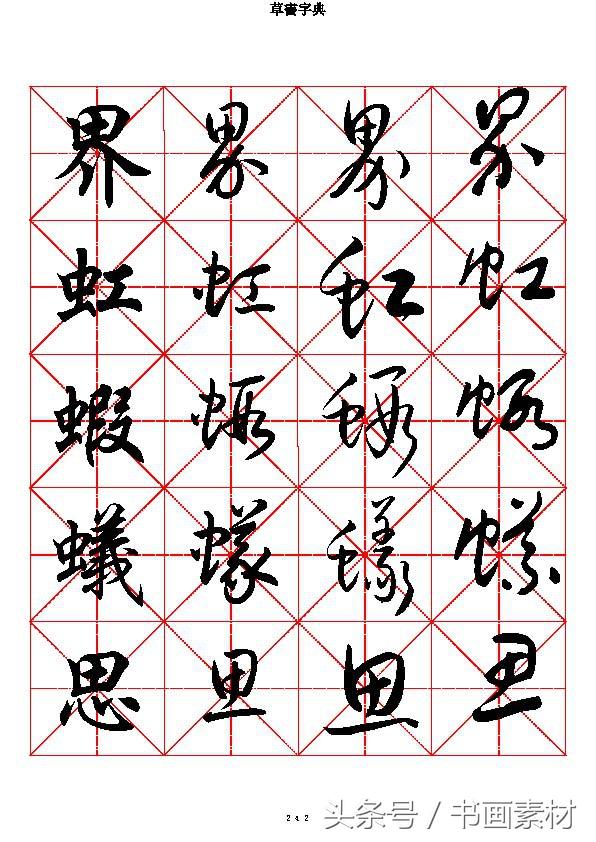 草書字典
界 界 界 界
虹 虹 虹 虹
蝦 蝦 蝦 蝦
蟻 蟻 蟻 蟻
思 思 思 思
242
头条号 / 书画素材